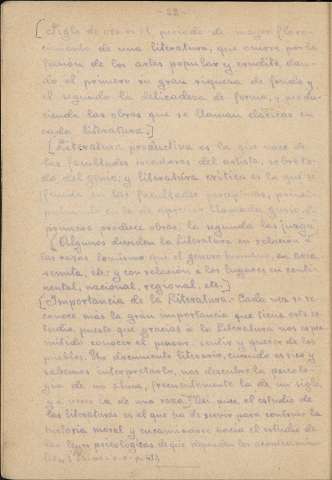 - 22 -
[Siglo de oro es el periodo de mayor flore-
cimiento de una literatura, que ocurre por la
fusión de los artes popular y erudito, dan-
do el primero su gran riqueza de fondo y
el segundo la delicadeza de forma, y produ-
ciendo las obras que se llaman clásicas en
cada literatura.]
[Literatura productiva es la que nace de
las facultades creadoras del artista, sobre to-
do del genio; y literatura crítica es la que se
funda en las facultades
primera produce obras, la segunda las juzga.
[Algunos dividen la Literatura en relación a
las razas
semita, etc. y con relación a los lugares en conti-
nental, nacional, regional, etc.]
[Importancia de la Literatura. Cada vez se re-
conoce más la gran importancia que tiene este es-
tudio, puesto que gracias a la Literatura nos es per-
mitido conocer el pensar, sentir y querer de los
pueblos. Un documento literario, cuando es rico y
sabemos interpretarlo, nos descubre la psicolo-
gía de un alma, frecuentemente la de un siglo,
y a veces la de una raza. Así, pues, el estudio de
las Literaturas es el que ha de servir para construir la
historia moral y encaminarse hacia el estudio de
las leyes psicológicas de que dependen los acontecimien-
tos.